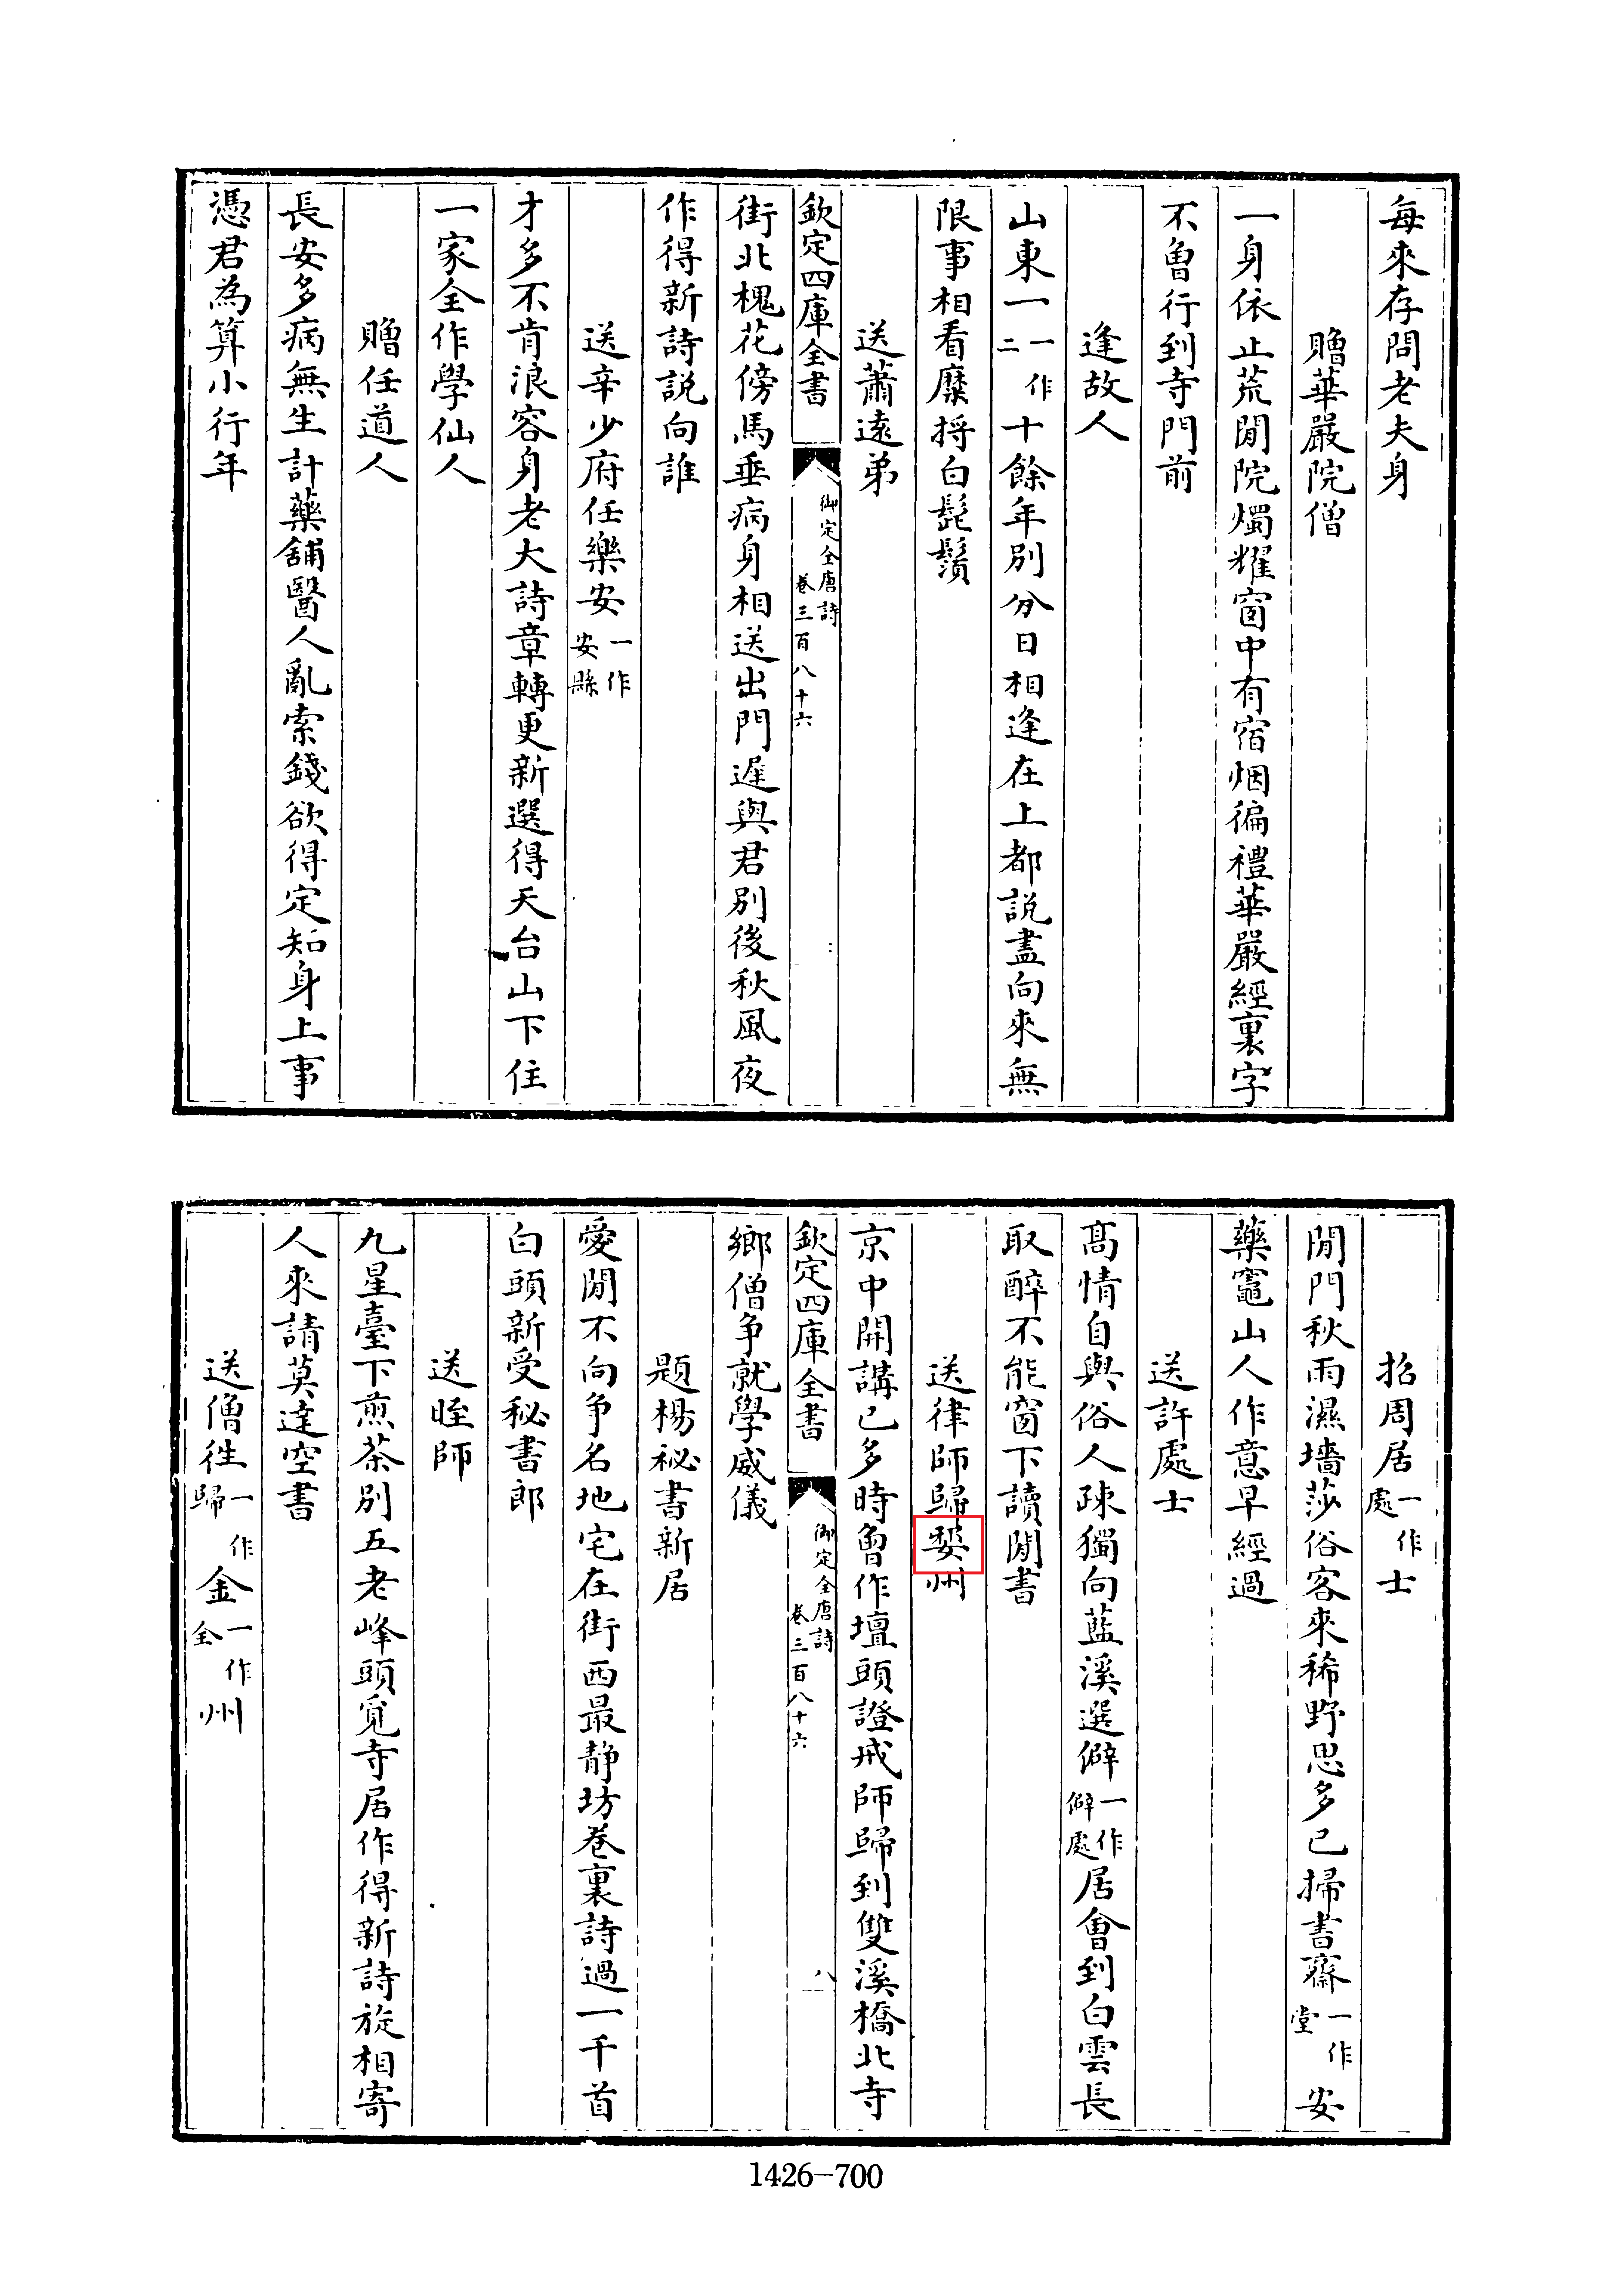 每來存問老夫身
贈華嚴院僧
一身依止荒閒院燭耀窗中有宿烟徧禮華嚴經裏字
不曾行到寺門前
逢故人
山東一一作二十餘年別分日相逢在上都説盡向來無
限事相看糜捋白髭鬚
送蕭遠弟
欽定四庫全書
御定全唐詩
卷三百八十六
街北槐花傍馬垂病身相送出門遲與君别後秋風夜
作得新詩説向誰
送辛少府任樂安一作安縣
才多不肯浪容身老大詩章轉更新選得天台山下住
一家全作學仙人
贈任道人
長安多病無生計藥舖醫人亂索錢欲得定知身上事
憑君為算小行年
招周居一作處士
閒門秋雨濕墻莎俗客來稀野思多已掃書齋一作堂安
藥竈山人作意早經過
送許處士
髙情自與俗人疎獨向藍溪選僻一作僻處居會到白雲長
取醉不能窗下讀閒書
送律師歸婺州
京中開講已多時曾作壇頭證戒師歸到雙溪橋北寺
欽定四庫全書
御定全唐詩
卷三百八十六
八
鄉僧争就學威儀
題楊秘書新居
愛閒不向争名地宅在街西最静坊卷裏詩過一千首
白頭新受秘書郎
送晊師
九星臺下煎茶别五老峰頭覓寺居作得新詩旋相寄
人來請莫達空書
送僧徃一作歸金一作全州
1426—700